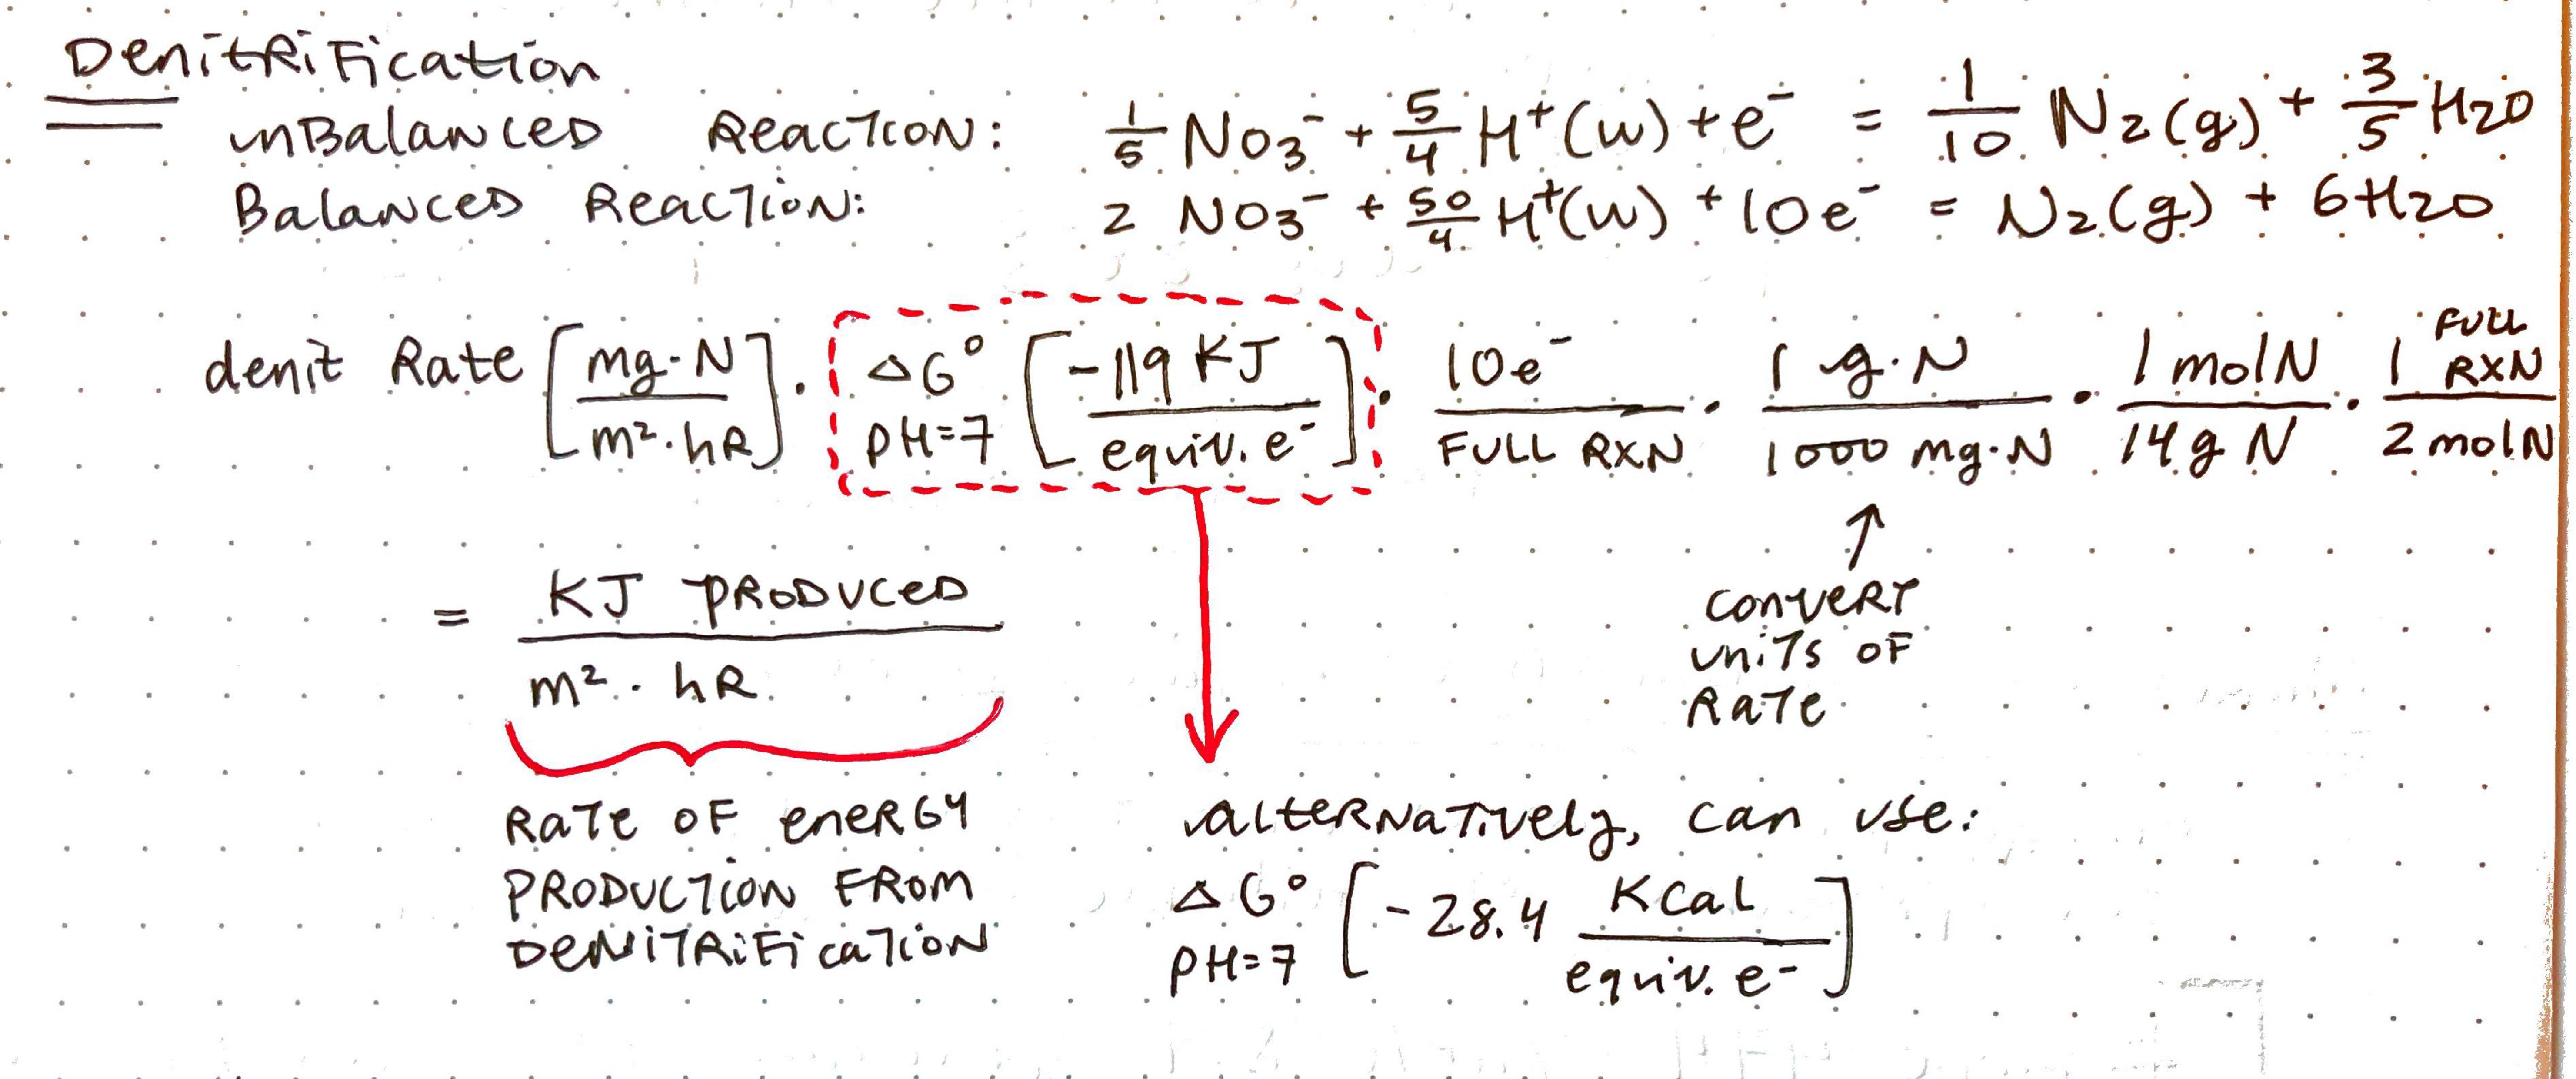 Denitrification
unBalanced Reaction: 1/5 NO3⁻ + 5/4 H⁺(w) + e⁻ = 1/10 N2(g) + 3/5 H2O
Balanced Reaction: 2 NO3⁻ + 50/4 H⁺(w) + 10e⁻ = N2(g) + 6H2O
denit Rate [mg·N / m²·hR] · ΔG° pH=7 [-119 KJ / equiv. e⁻] · 10e⁻ / FULL RXN · 1 g·N / 1000 mg·N · 1 molN / 14g N · 1 FULL RXN / 2 molN
= KJ PRODUCED / m²·hR
convert
units of
Rate
Rate of energy
Production From
Denitrification
alternatively, can use:
ΔG° pH=7 [-28.4 Kcal / equiv. e-]